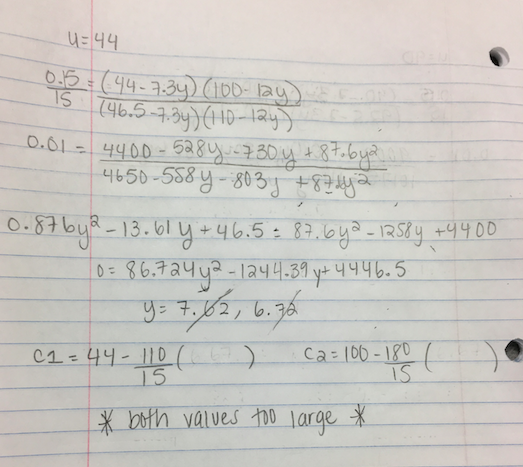 u=44
0.15/15 = (44-7.3y)(100-12y)/(46.5-7.3y)(110-12y)
0.01 = 4400-528y-730y+87.6y²/4650-558y-803y+87.6y²
0.876y²-13.61y+46.5 = 87.6y²-1258y+4400
0= 86.724y²-1244.39y+4446.5
y= 7.62, 6.72
C1 = 44 - 110/15 ( ) C2 = 100 - 180/15 ( )
* both values too large *